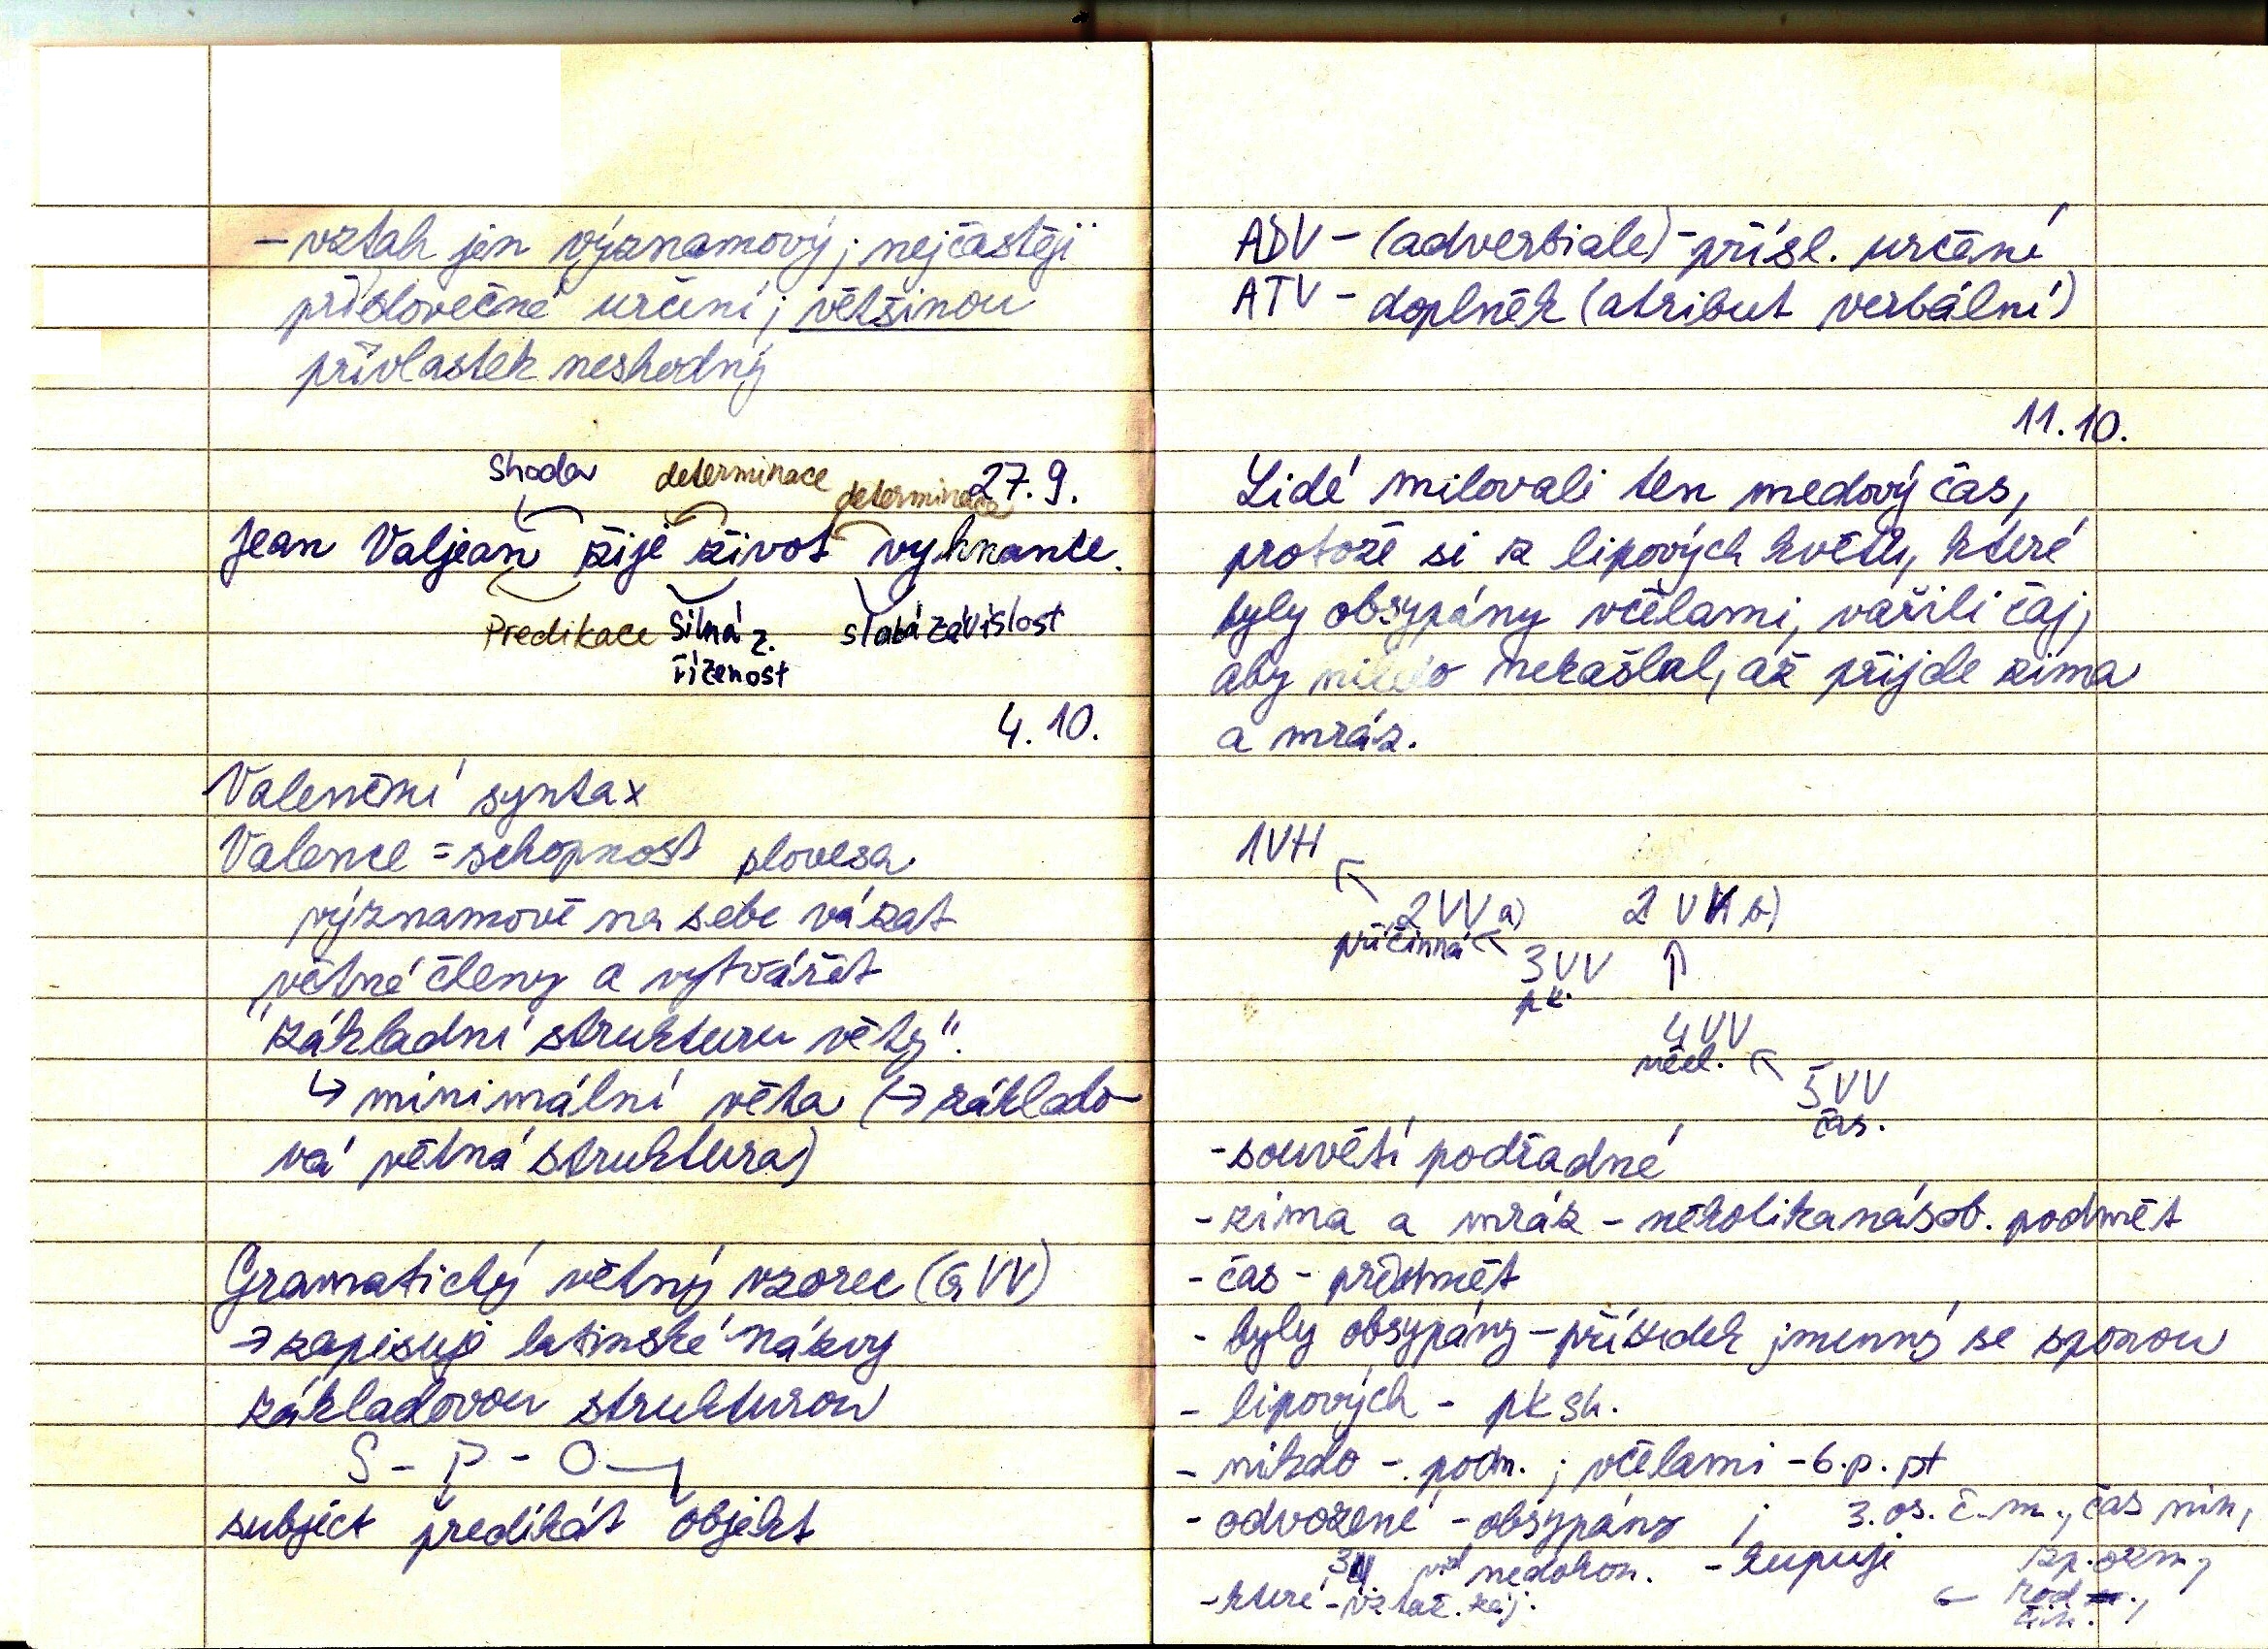 - vztah jen významový; nejčastěji
příslovečné určení; většinou
přívlastek neshodný
27.9.
shoda determinace determinace
Jean Valjean žije život vyhnance.
Predikace Silná z. slabá závislost
řízenost
4.10.
Valenční syntax
Valence = schopnost slovesa
významově na sebe vázat
větné členy a vytvářet
"základní strukturu věty".
↳ minimální věta (→ základo-
vá větná struktura)
Gramatický větný vzorec (GVV)
→ zapisuje latinské názvy
základovou strukturou
S - P - O
subject predikát objekt
ADV - (adverbiale) - přísl. určení
ATV - doplněk (atribut verbální)
11.10.
Lidé milovali ten medový čas,
protože si z lipových květů, které
byly obsypány včelami, vařili čaj,
aby nikdo nekašlal, až přijde zima
a mráz.
1VH
2VV a) 2VH b)
příčinná
3VV ↑
pk.
4VV
věd.
5VV
čas.
- souvětí podřadné
- zima a mráz - několikanásob. podmět
- čas - předmět
- byly obsypány - přísudek jmenný se sponou
- lipových - pk sh.
- nikdo - podm. ; včelami - 6. p. pt
- odvozené - obsypány ; 3. os. č. m., čas min,
vid nedokon. - kupuji zp. ozn.,
- které - vztaž. záj. ← rod
čin.